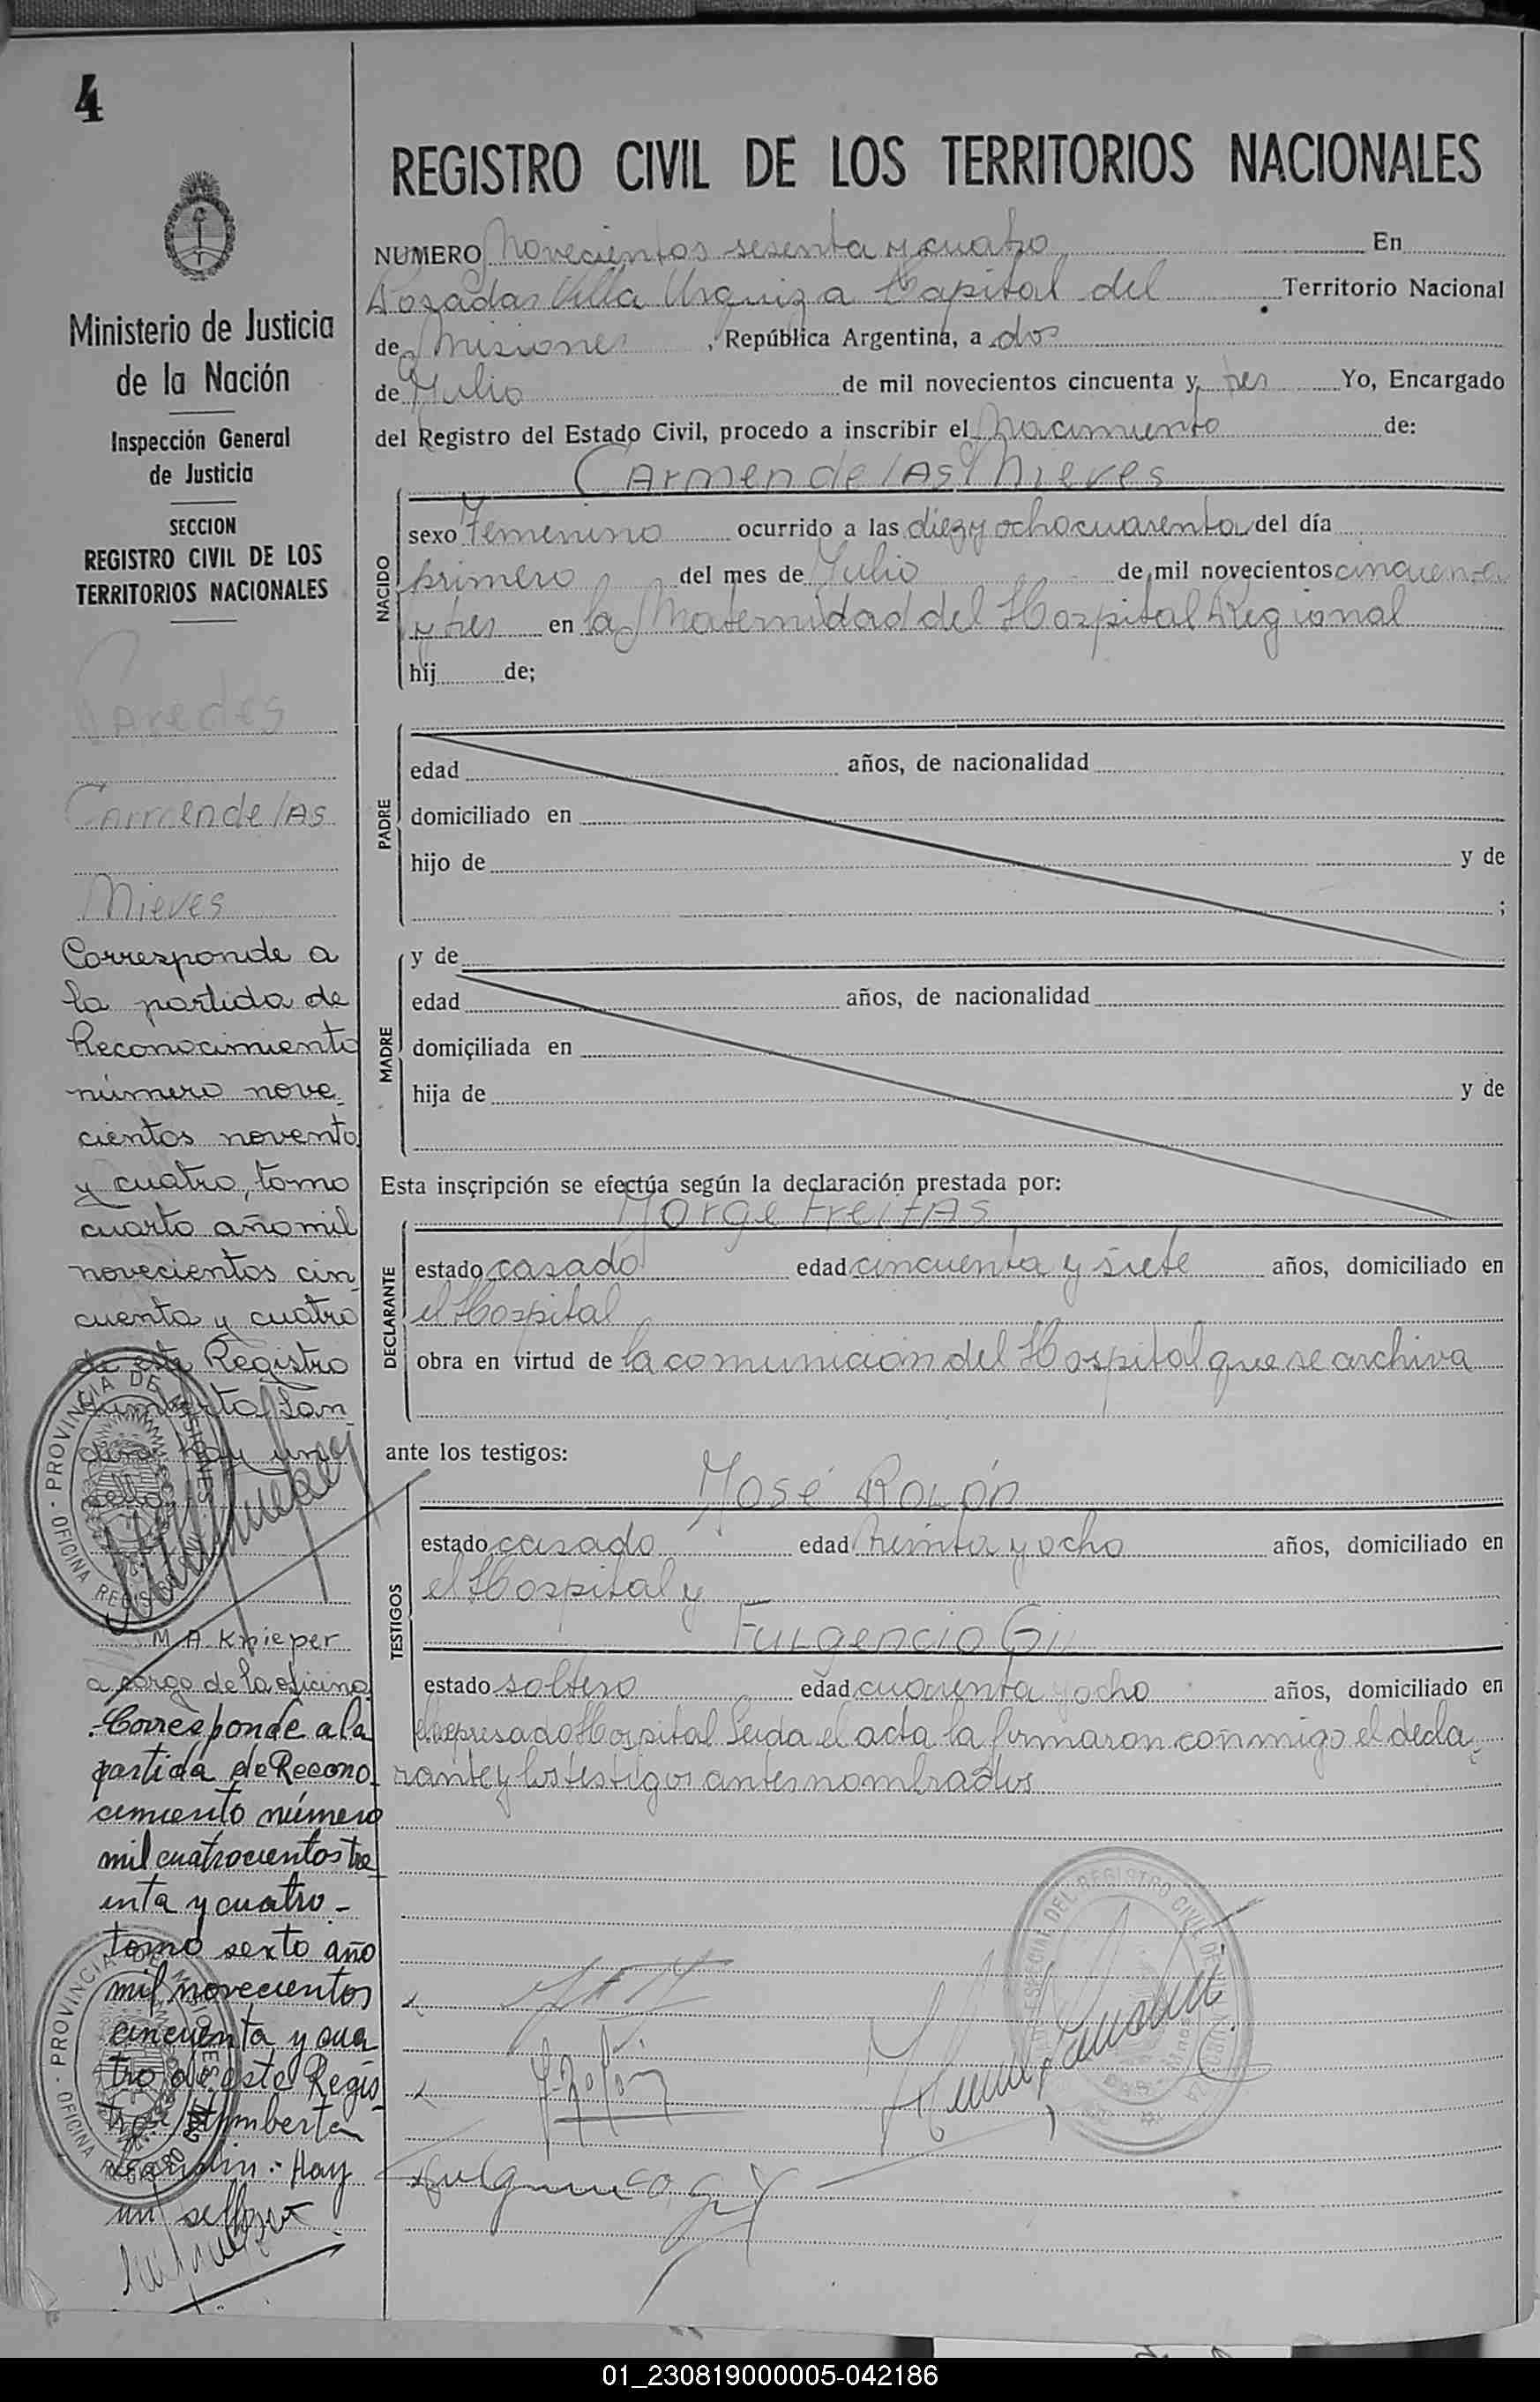 4
REGISTRO CIVIL DE LOS TERRITORIOS NACIONALES
Ministerio de Justicia
de la Nación
Inspección General
de Justicia
SECCION
REGISTRO CIVIL DE LOS
TERRITORIOS NACIONALES
Paredes
Carmen de las
Nieves
Corresponde a
la partida de
Reconocimiento
número nove-
cientos noventa
y cuatro, tomo
cuarto año mil
novecientos cin
cuenta y cuatro
de este Registro
Humberto Lan-
hay un
sello
PROVINCIA DE MISIONES
OFICINA
M. A. Knieper
a cargo de la oficina
-Corresponde a la
partida de Recono-
cimiento número
mil cuatrocientos tre
inta y cuatro -
tomo sexto año
mil novecientos
cincuenta y cua
tro de este Regis-
tro Humberto
Hay
un sello
PROVINCIA DE MISIONES
OFICINA
NUMERO Novecientos sesenta y cuatro En
Posadas Villa Urquiza Capital del Territorio Nacional
de Misiones, República Argentina, a dos
de Julio de mil novecientos cincuenta y tres Yo, Encargado
del Registro del Estado Civil, procedo a inscribir el Nacimiento de:
Carmen de las Nieves
NACIDO
sexo Femenino ocurrido a las diez y ocho cuarenta del día
primero del mes de Julio de mil novecientos cincuenta
y tres en la Maternidad del Hospital Regional
hij de;
PADRE
edad años, de nacionalidad
domiciliado en
hijo de y de
;
MADRE
y de
edad años, de nacionalidad
domiciliada en
hija de y de
Esta inscripción se efectúa según la declaración prestada por:
Jorge Freitas
DECLARANTE
estado casado edad cincuenta y siete años, domiciliado en
el Hospital
obra en virtud de la comunicación del Hospital que se archiva
ante los testigos:
José Rolón
TESTIGOS
estado casado edad treinta y ocho años, domiciliado en
el Hospital y
Fulgencio Gil
estado soltero edad cuarenta y ocho años, domiciliado en
el expresado Hospital Leida el acta la firmaron conmigo el decla-
rante y los testigos antes nombrados
DEL REGISTRO CIVIL
J. Rolón
Fulgencio Gil
01_230819000005-042186